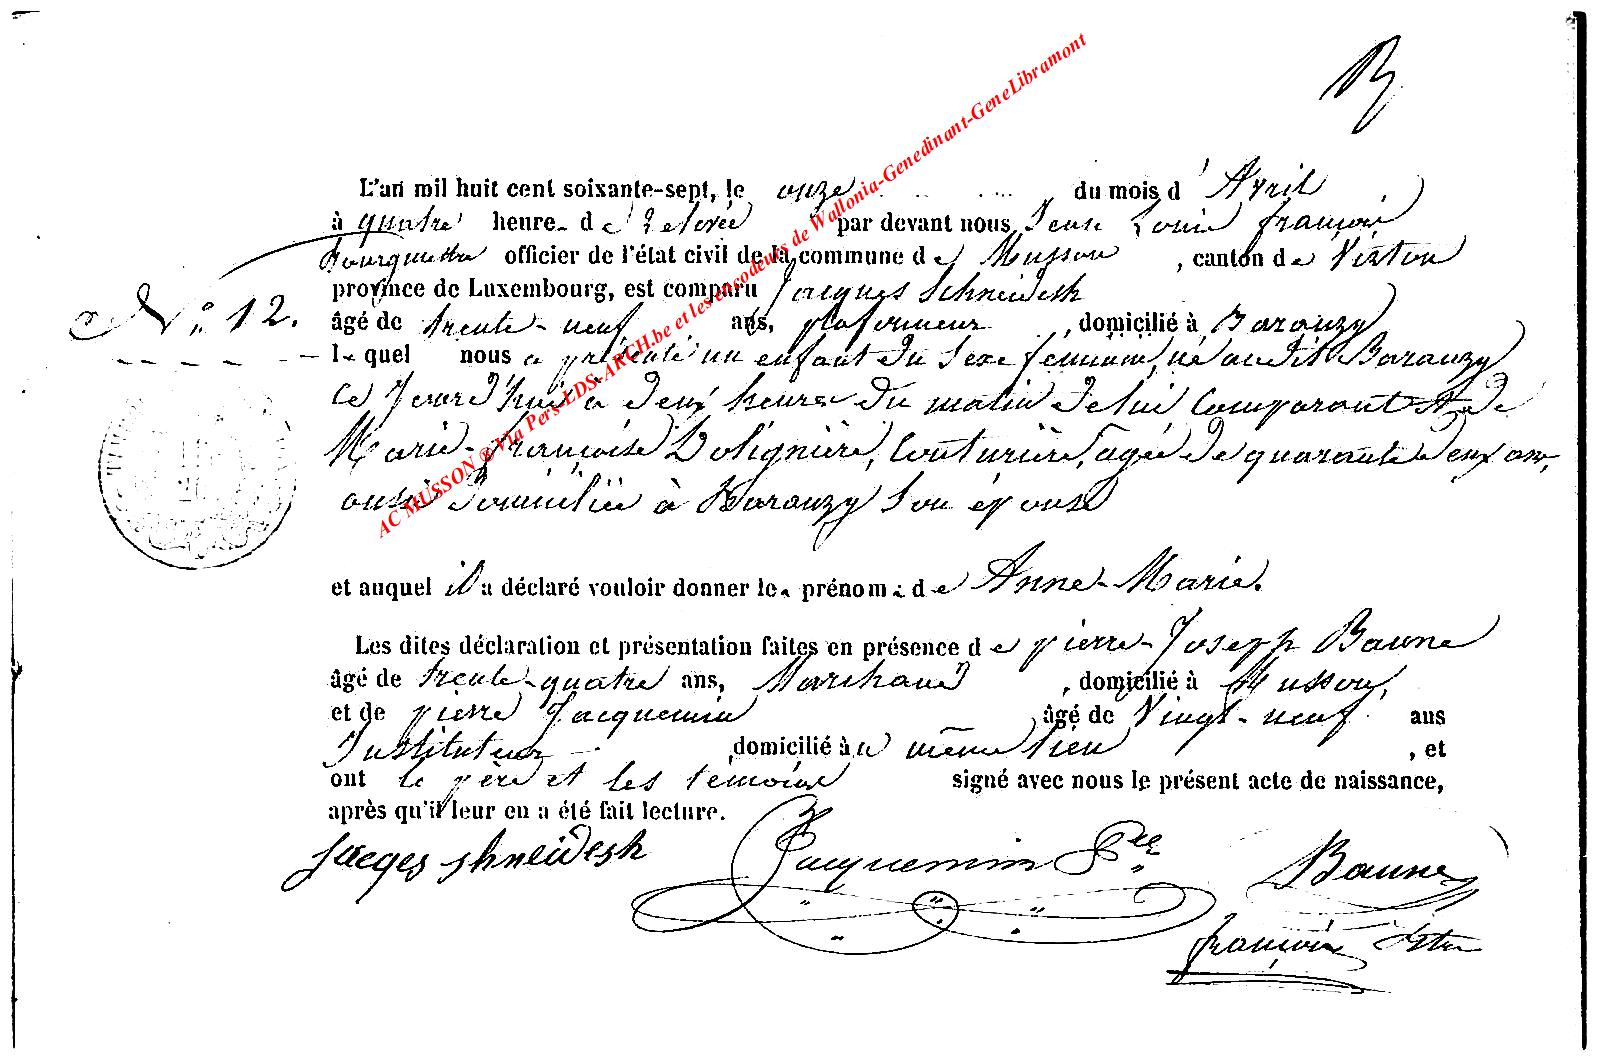 L'an mil huit cent soixante-sept, le onze du mois d'Avril
à quatre heure de Relevée par devant nous Jean Louis françois
officier de l'état civil de la commune de Musson, canton de Virton
province de Luxembourg, est comparu Jacques Schneidesh
N° 12. âgé de trente-neuf ans, plafonneur, domicilié à Baranzy
lequel nous a présenté un enfant du sexe féminin, né audit Baranzy
ce jourd'hui à deux heures du matin de lui Comparant et de
Marie-françoise Dolignière, Couturière, agée de quarante deux ans,
aussi Domiciliée à Baranzy Son épouse
et auquel il a déclaré vouloir donner les prénoms de Anne-Marie.
Les dites déclaration et présentation faites en présence de pierre-Joseph Baune
âgé de trente-quatre ans, Marchand, domicilié à Musson,
et de pierre Jacquemin âgé de Vingt-neuf ans
Instituteur, domicilié au même lieu, et
ont le père et les témoins signé avec nous le présent acte de naissance,
après qu'il leur en a été fait lecture.
Jacqes shneidesh Jacquemin Baune
françois
AC MUSSON ® Via Pers-LDS-ARCH.be et les encodeurs de Wallonia-Genedinant-GeneLibramont